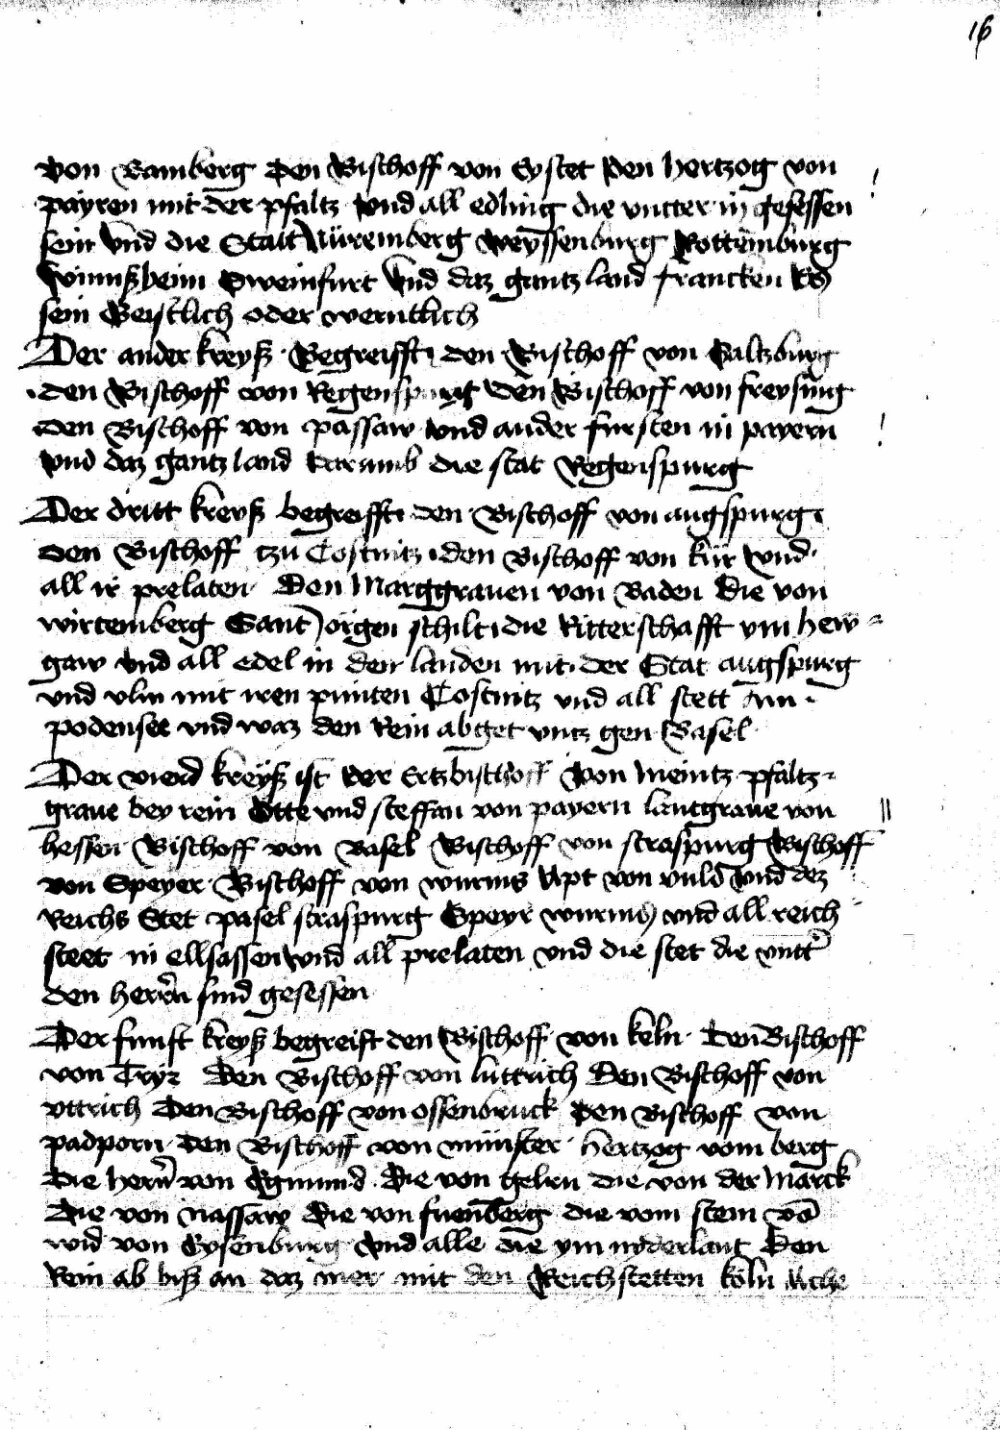 16
von Bamberg Den Bischoff von Eystet Den hertzog von
payren mit der pfaltz vnd all edling die vntter in gesessen
sein vnd die Statt Nüremberg weyssenburg Rottemburg
winnßheim Sweinfurt vnd daz gantz land francken
sein Geistlich oder werntlich
Der ander kreyß Begreifft den Bischoff von Saltzburg
den Bischoff von Regenspurg den Bischoff von freysing
den Bischoff von passaw vnd ander fursten in payern
vnd daz gantz land darumb die stat Regenspurg
Der dritt kreyß begreifft den Bischoff von augspurg
den Bischoff tzu Costnitz den Bischoff von kür vnd
all ir prelaten Den Marggrauen von Baden Die von
wirtemberg Sant Jörgen schilt die Ritterschafft ym hew-
gaw vnd all edel in den landen mit der Stat augspurg
vnd vlm mit iren punten Costnitz vnd all stett am
podensee vnd waz den Rein abget vntz gen Basel
Der vierd kreyß ist der Ertzbisthoff von Meintz pfaltz-
graue bey rein Otte vnd steffan von payern lantgraue von
hessen Bischoff von Basel Bischoff von straspurg Bischoff
von Speyer Bischoff von wurms Apt von vuld vnd dez
Reichs Stet pasel straspurg Speyr wurms vnd all reich
steet in ellsassen vnd all prelaten vnd die stet die vntt
den herrn sind gesessen
Der funft kreyß begreift den Bischoff von keln Den Bischoff
von Tryr Den Bischoff von luttrich Den Bischoff von
vttrich Den Bischoff von ossenbruck Den Bischoff von
padporn den Bischoff von münster hertzog vom berg
Die hern von Egmund Die von gelrn die von der Marck
Die von nassaw Die von fuenberg die vom stein vō
wid von Eysenburg vnd alle die ym niderlant Den
Rein ab biß an daz mer mit den Reichstetten köln Ache